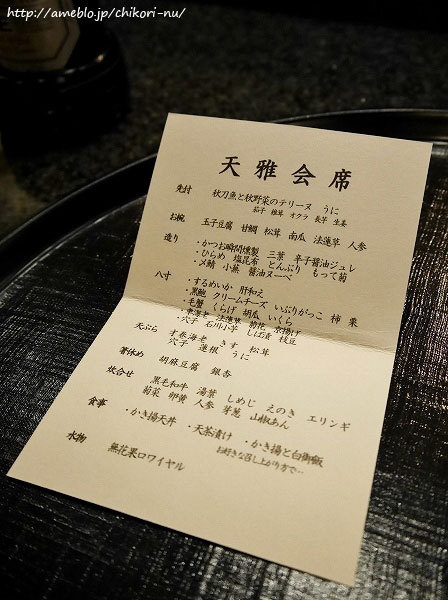 http://ameblo.jp/chikori-nu/
天雅会席
先付 秋刀魚と秋野菜のテリーヌ うに
茄子 椎茸 オクラ 長芋 生姜
お椀 玉子豆腐 甘鯛 松茸 南瓜 法蓮草 人参
造り ・かつお瞬間燻製 三葉 辛子醤油ジュレ
・ひらめ 塩昆布 とんぶり もって菊
・〆鯖 小蕪 醤油ヌーベ
八寸 ・するめいか 肝和え
・黒鮑 クリームチーズ いぶりがっこ 柿 栗
・毛蟹 くらげ 胡瓜 いくら
・車海老 法蓮草 菊花 京揚げ
・穴子 石川小芋 しば漬 枝豆
天ぷら 才巻海老 きす 松茸
穴子 蓮根 うに
箸休め 胡麻豆腐 銀杏
炊合せ 黒毛和牛 湯葉 しめじ えのき エリンギ
菊菜 卵黄 人参 芽葱 山椒あん
食事 ・かき揚天丼 ・天茶漬け ・かき揚と白御飯
お好きな召し上がり方で…
水物 無花果ロワイヤル